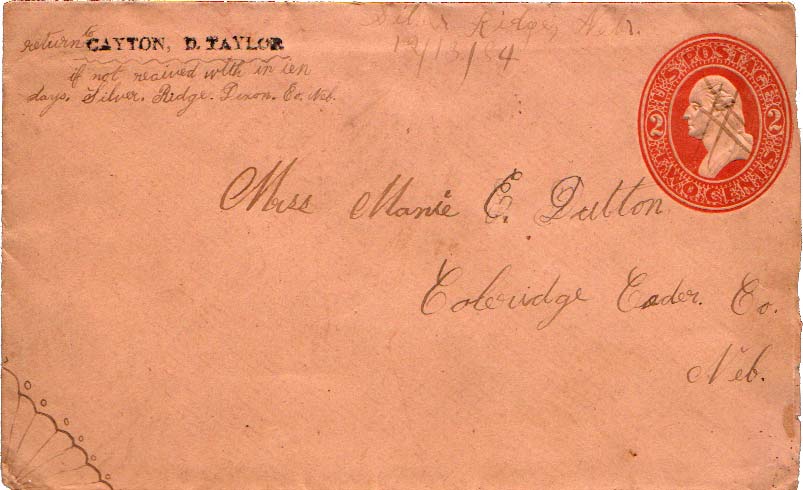 Silver Ridge, Nebr.
12/13/84
return to CAYTON, D. TAYLOR
if not reaived with in ten
days. Silver. Ridge. Dixon. Co. Neb.
U.S. POSTAGE
2 2
TWO CENTS
Miss Manie E. Dutton
Coleridge Ceder. Co.
Neb.